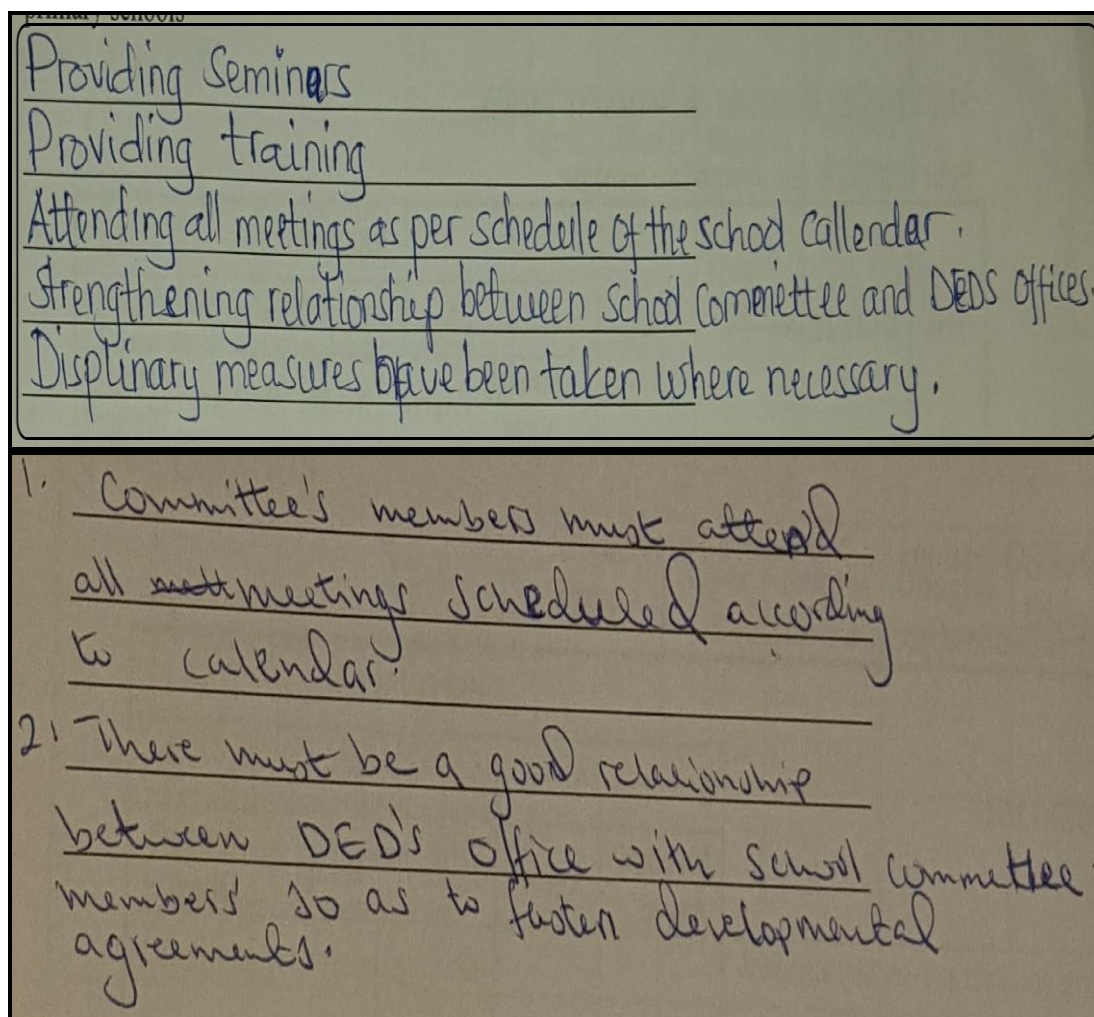 primary schools
Providing Seminars
Providing training
Attending all meetings as per schedule of the school Callendar.
Strengthening relationship between school Comenettee and DEDS offices.
Displinary measures have been taken where necessary.
1. Committee's members must attend
all meetings scheduled according
to calendar.
2. There must be a good relationship
between DED's office with school committee
members so as to fasten developmental
agreements.